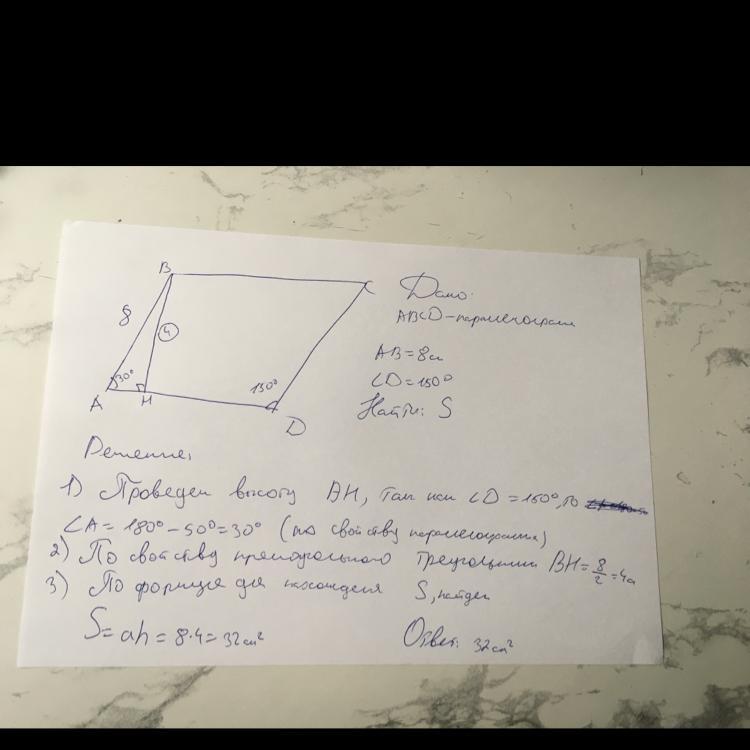 B
C
8
4
30°
150°
A
H
D
Дано:
ABCD - параллелограм
AB = 8см
∠D = 150°
Найти: S
Решение,
1) Проведем высоту BH, Так как ∠D = 150°, то
∠A = 180° - 50° = 30° (по свойству параллелограмма)
2) По свойству прямоугольного треугольника BH = 8/2 = 4см
3) По формуле для нахождения S, найдем
S = ah = 8·4 = 32 см²
Ответ: 32см²